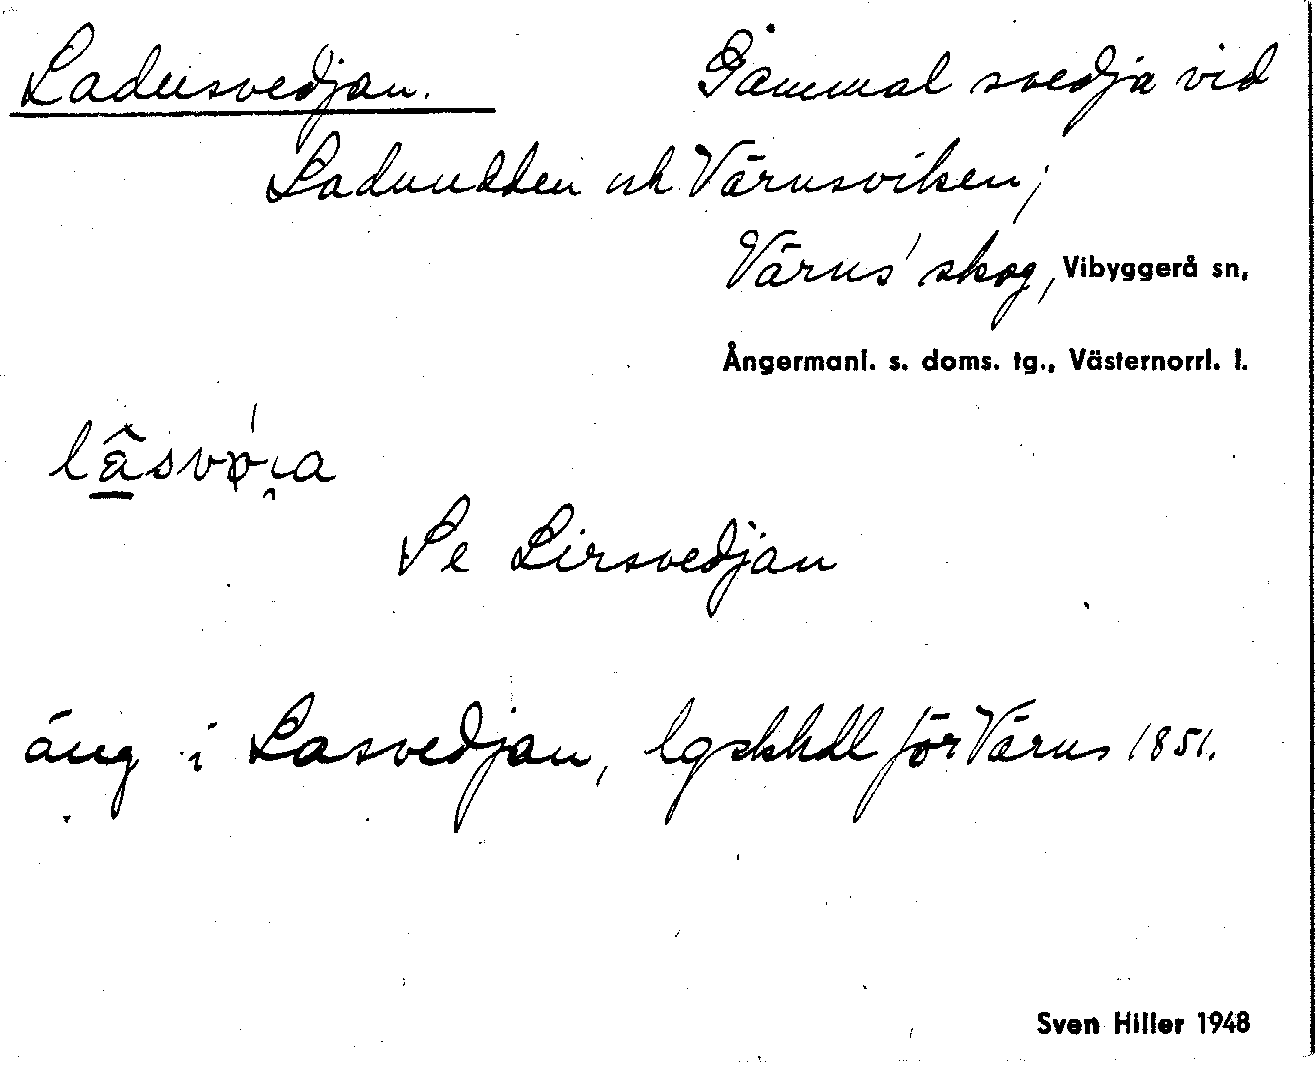 Ladusvedjan. Gammal svedja vid
Laduudden och Värnsviken;
Värns' skog, Vibyggerå sn,
Ångermanl. s. doms. tg., Västernorrl. l.
Se Lirsvedjan
äng i Lasvedjan, lgskhdl för Värns 1851.
Sven Hiller 1948